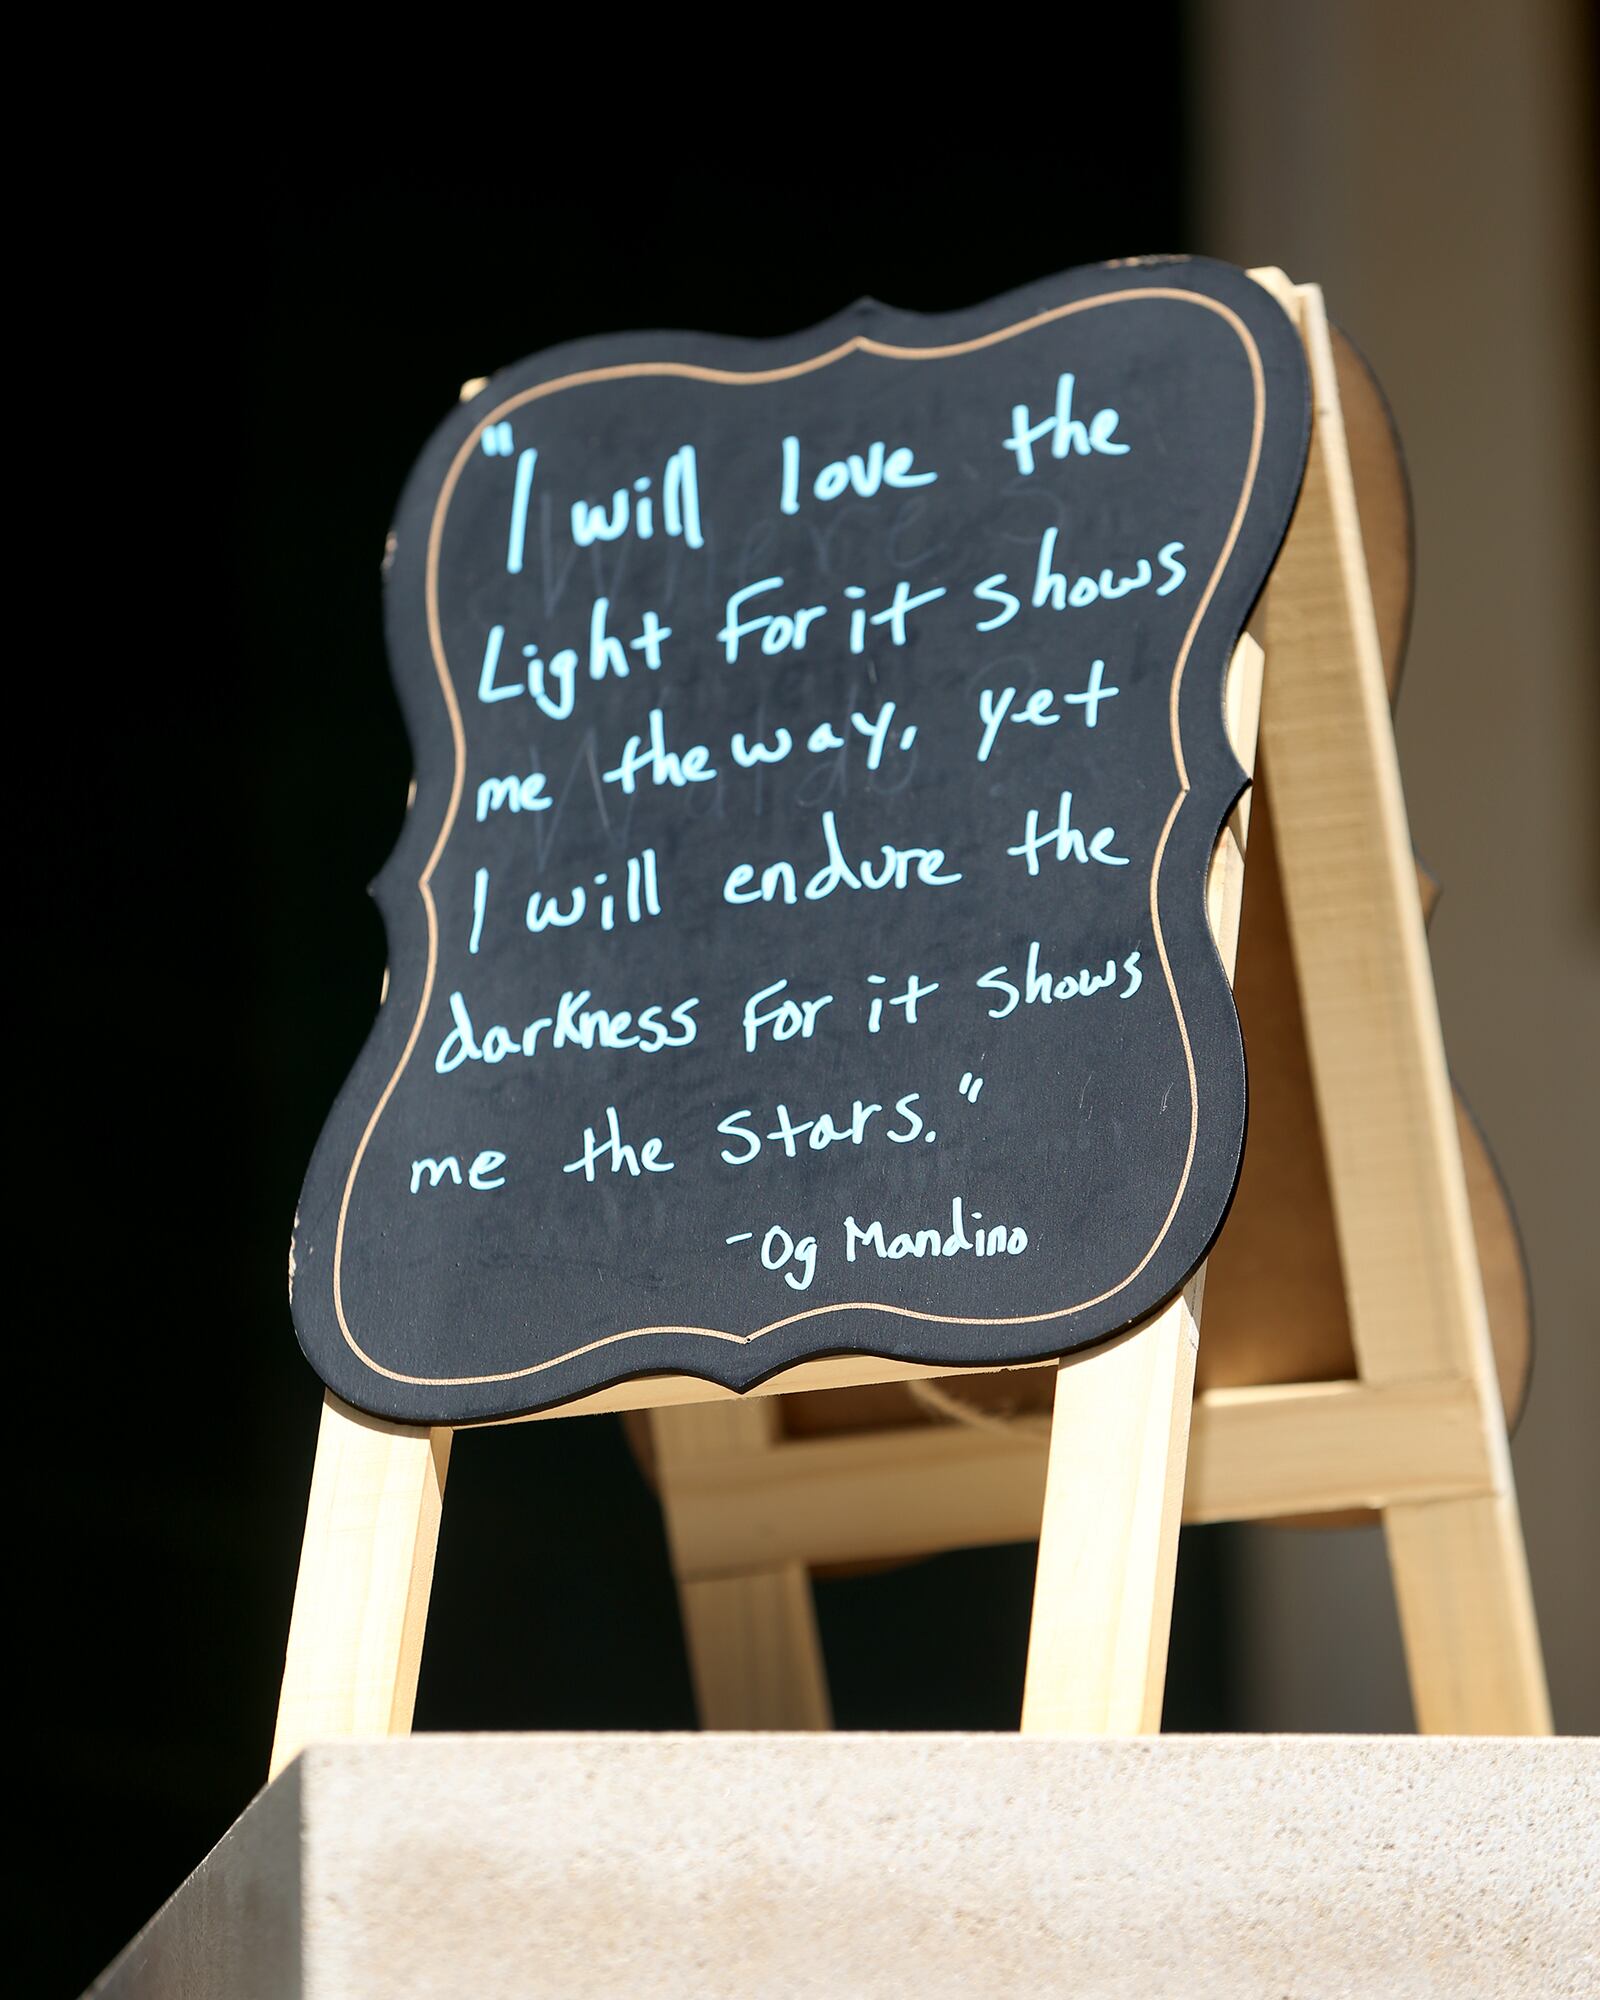 "I will love the
Light For it shows
me the way, yet
I will endure the
darkness For it shows
me the Stars."
-Og Mandino